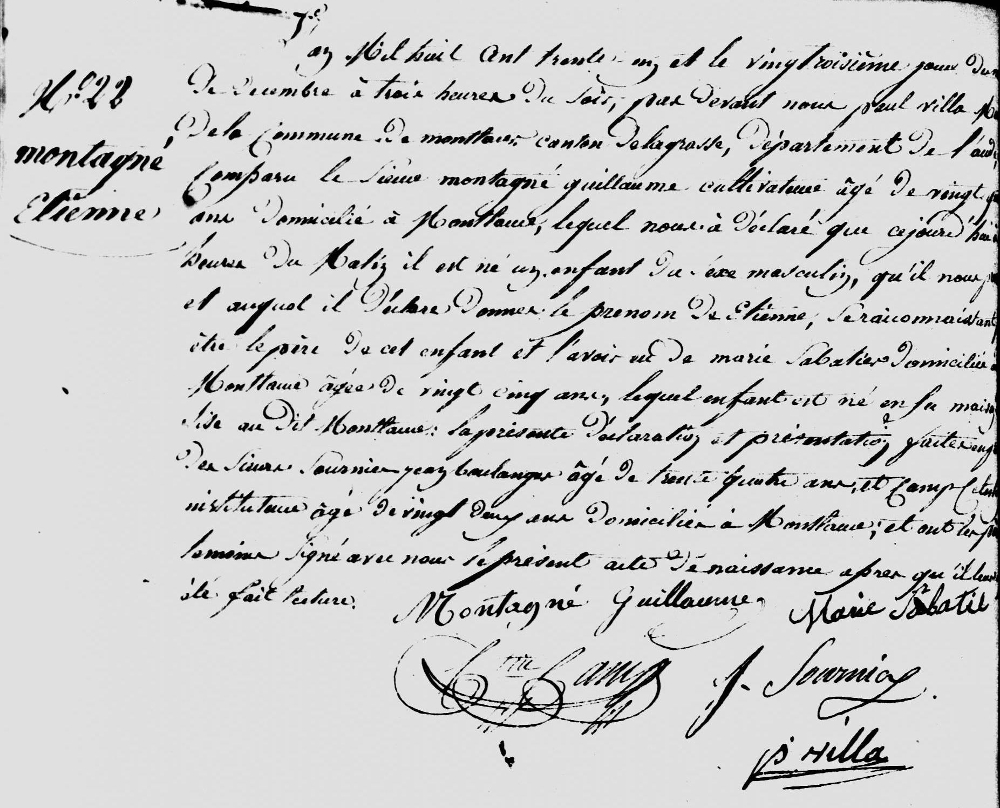 Nro 22
montagné
Etienne
an Mil huit Cent trente un et le vingtroisième jour du
de Decembre à trois heures du soir, par devant nous paul villa
De la Commune de montlaur canton delagrasse, département de l'aude
Comparu le sieur montagné guillaume cultivateur âgé de vingt
ans domicilié à Montlaur, lequel nous à déclaré que cejourd'hui
heures du Matin il est né un enfant du sèxe masculin, qu'il nous
et auquel il déclare donner le prenom de Etienne, se raiconnaissant
être le père de cet enfant et l'avoir eu de marie Sabatier domiciliée
Montlaur âgée de vingt cinq ans, lequel enfant est né en sa maison
sise au dit Montlaur: la présente déclaration et présentation faites en
des sieurs Sournies jean boulanger âgé de trente quatre ans, et Camp
instituteur âgé de vingt deux ans domiciliés à Montlaur; et ont les
temoins signé avec nous le présent acte de naissance apres qu'il leur
été fait lecture.
Montagné Guillaume
Marie Sabatié
Camp
J. Sournies
p villa